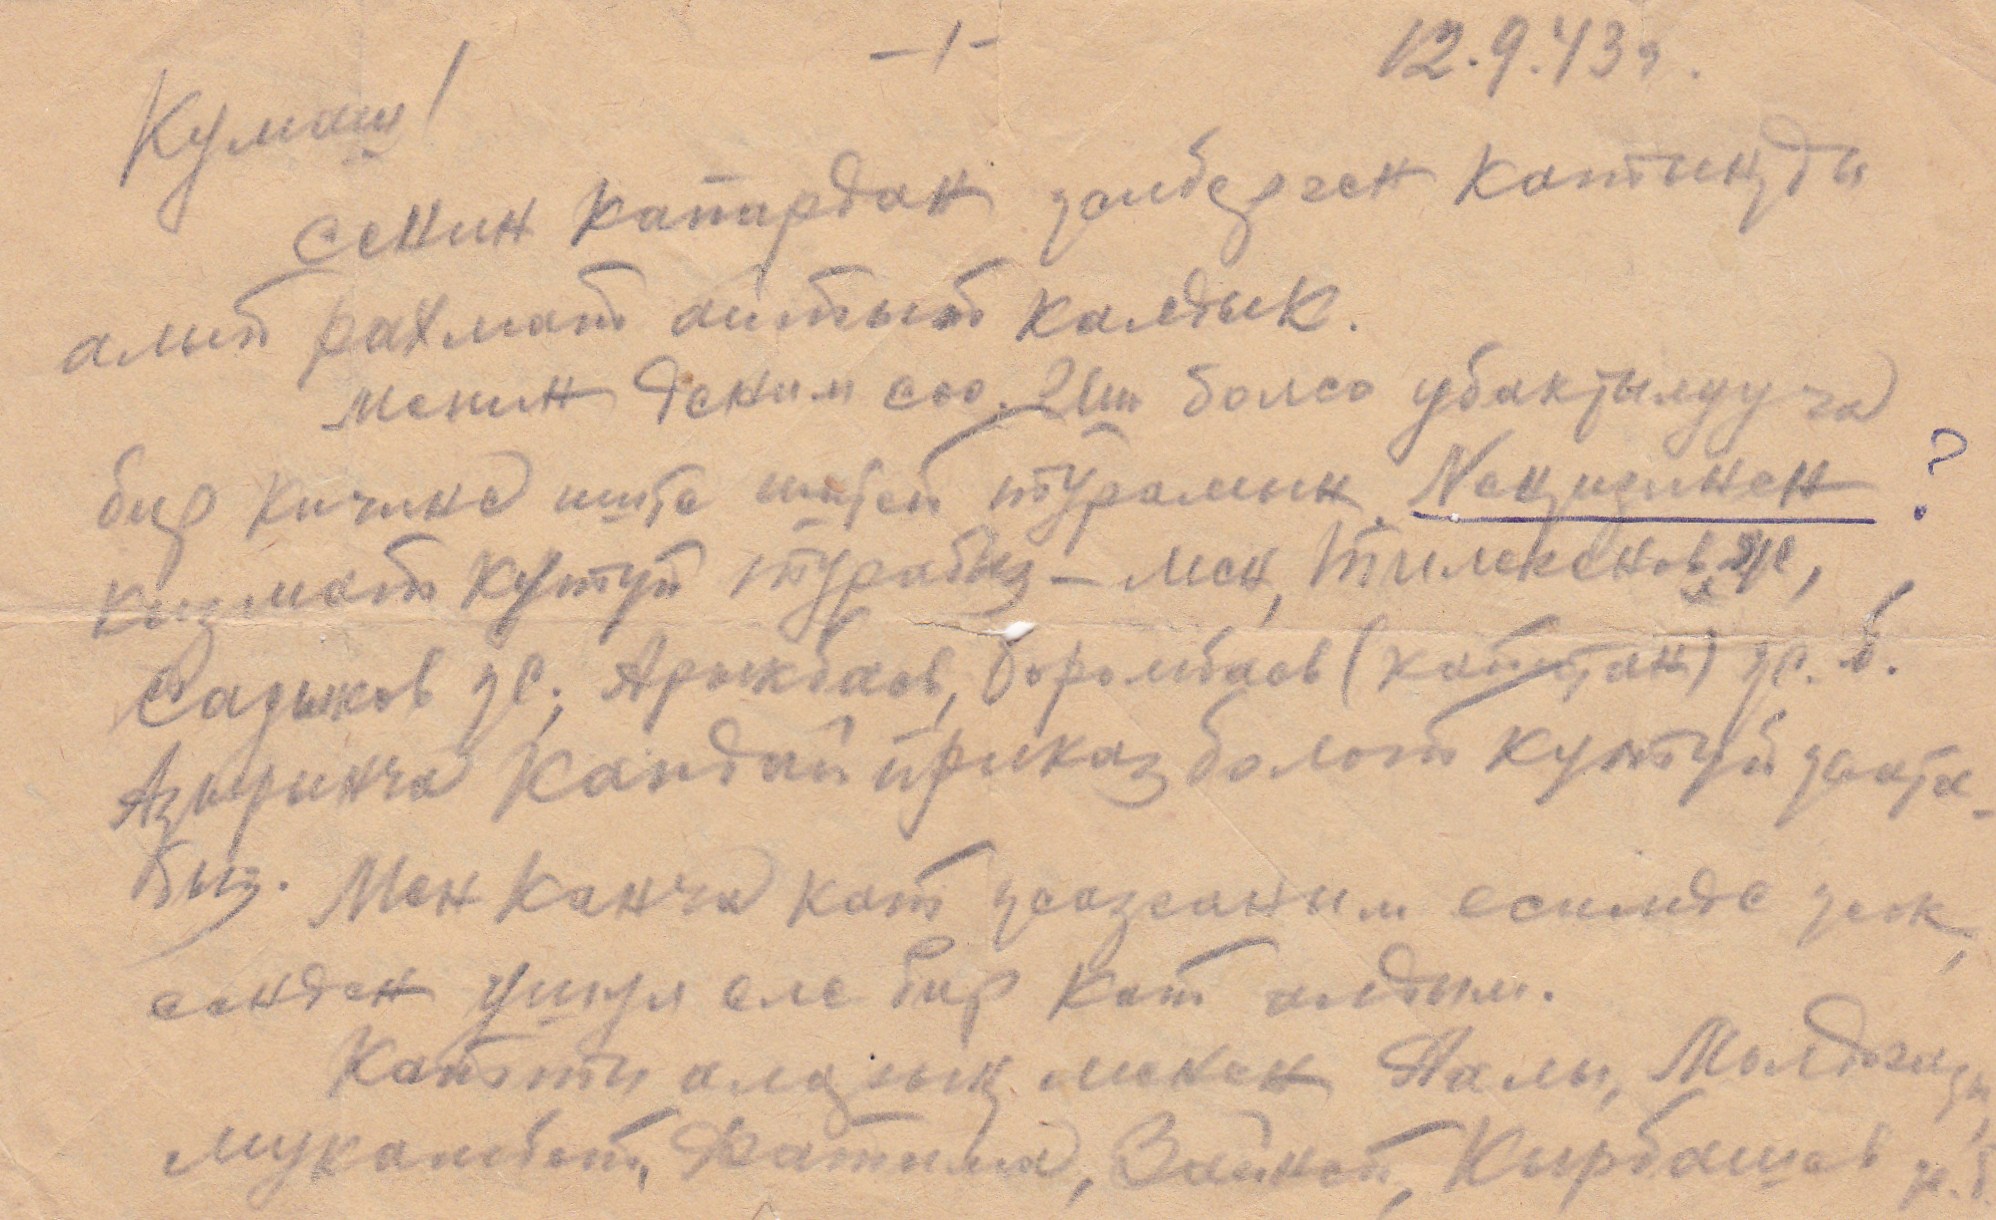 -1-
12.9.43г.
Кумаш!
сенин капардан жиберген катиңди
алып рахмат айтып калдык.
Менин деним соо. Иш болсо убактылууча
бир кичине иште иштеп турамын.
кызмат кутуп турабыз – мен, Тилекенов ж,
Садыков ж, Арыкбаев, Боромбаев (капитан) ж. б.
Азырынча кандай приказ болот кутуп жата-
быз. Мен канча кат жазганим есимде жок,
сенден ушул еле бир кат алдым.
менен Аалы,
Мукамбет, Фатима, Зайнеп, Кырбашев ж. б.
?